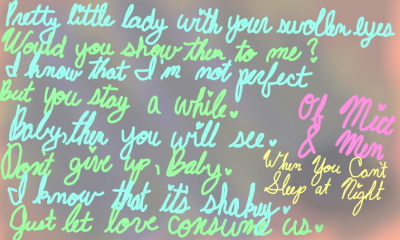 Pretty little lady with your swollen eyes
Would you show them to me?
I know that I'm not perfect
But you stay a while♥
Baby, then you will see♥
Don't give up, Baby♥
I know that it's shakey♥
Just let love consume us♥
Of Mice
& Men
When You Can't
Sleep at Night